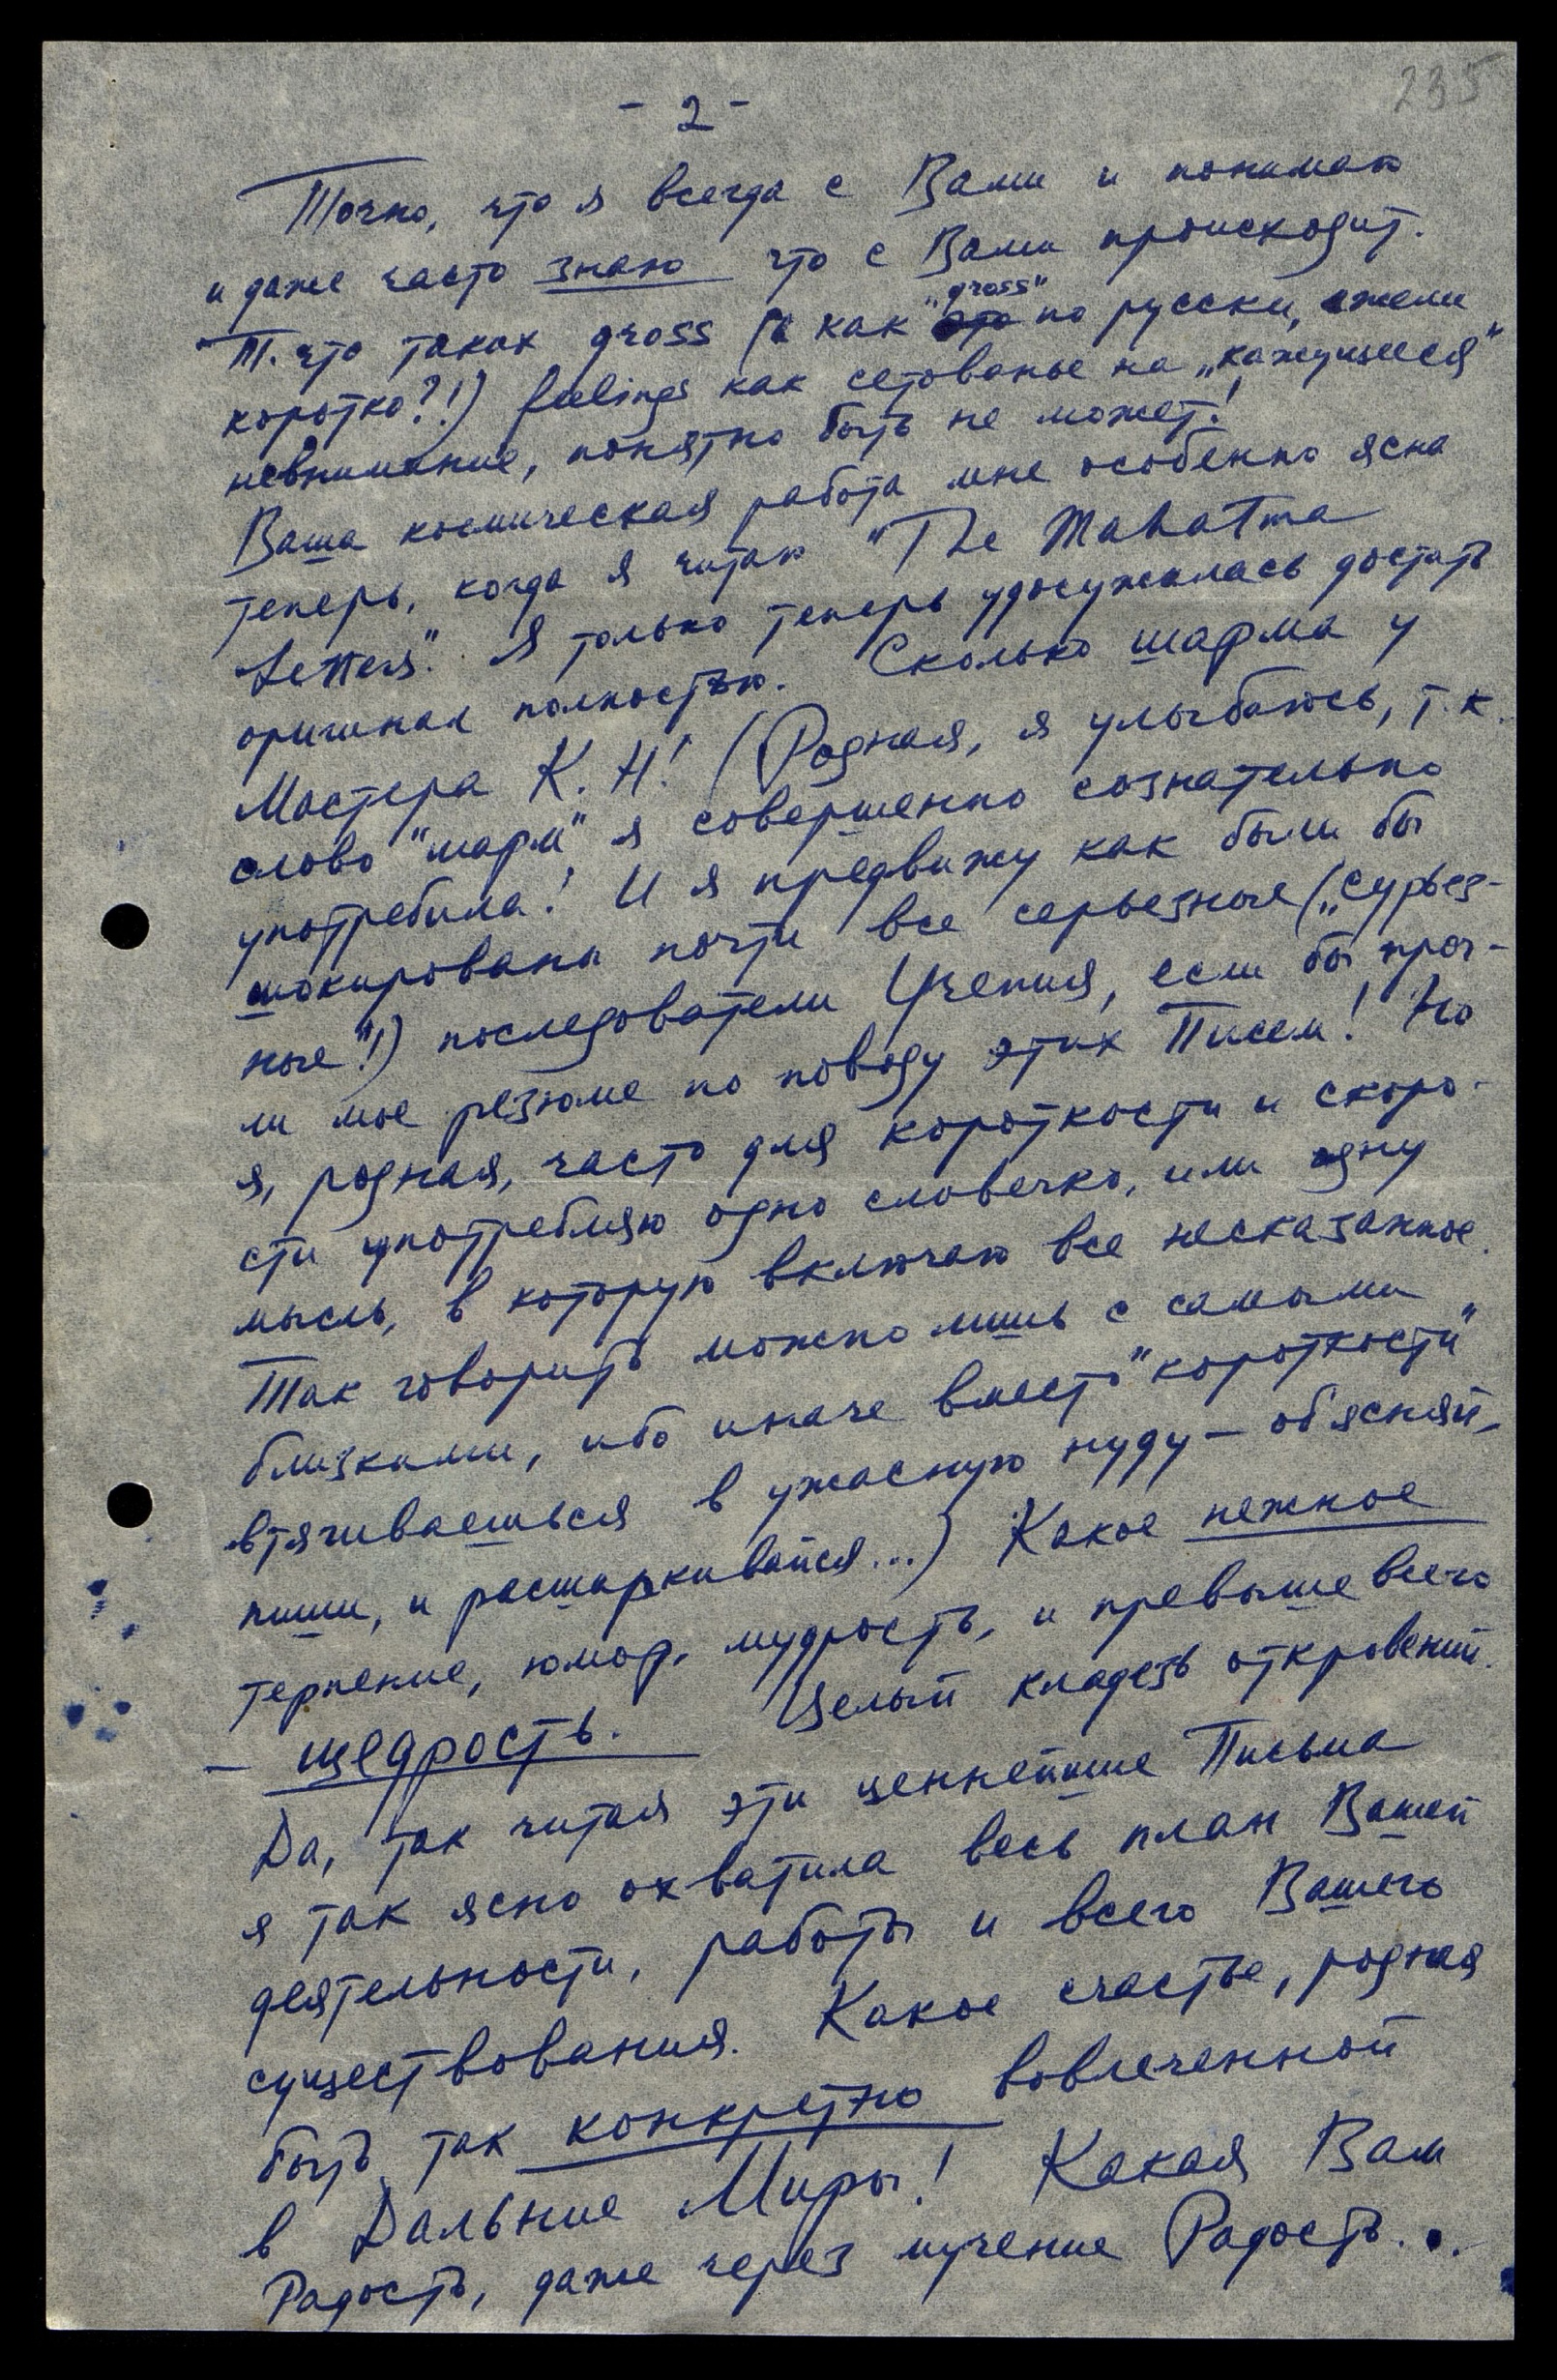 235
- 2 -
Точно, что я всегда с Вами и понимаю
и даже часто знаю что с Вами происходит.
Т. что таких gross (а как "gross" по русски, ежели
коротко?!) feelings как сетованье на „кажущееся"
невнимание, понятно быть не может!
Ваша космическая работа мне особенно ясна
теперь, когда я читаю "The Mahatma
Letters". Я только теперь удосужилась достать
оригинал полностью. Сколько шарма у
Мастера К. Н! (Родная, я улыбаюсь, т.к.
слово "шарм" я совершенно сознательно
употребила! И я предвижу как были бы
шокированы почти все серьезные („сурьез-
ные"!) последователи Учения, если бы проч-
ли мое резюме по поводу этих Писем! Но
я, родная, часто для короткости и скоро-
сти употребляю одно словечко, или одну
мысль, в которую включаю все несказанное.
Так говорить можно лишь с самыми
близкими, ибо иначе вместо "короткости"
втягиваешься в ужасную нуду — об'ясняй,
пиши, и расшаркивайся...) Какое нежное
терпение, юмор, мудрость, и превыше всего
— щедрость. Целый кладезь откровений.
Да, так читая эти ценнейшие Письма
я так ясно охватила весь план Вашей
деятельности, работы и всего Вашего
существования. Какое счастье, родная
быть так конкретно вовлеченной
в Дальние Миры! Какая Вам
Радость, даже через мучение Радость...